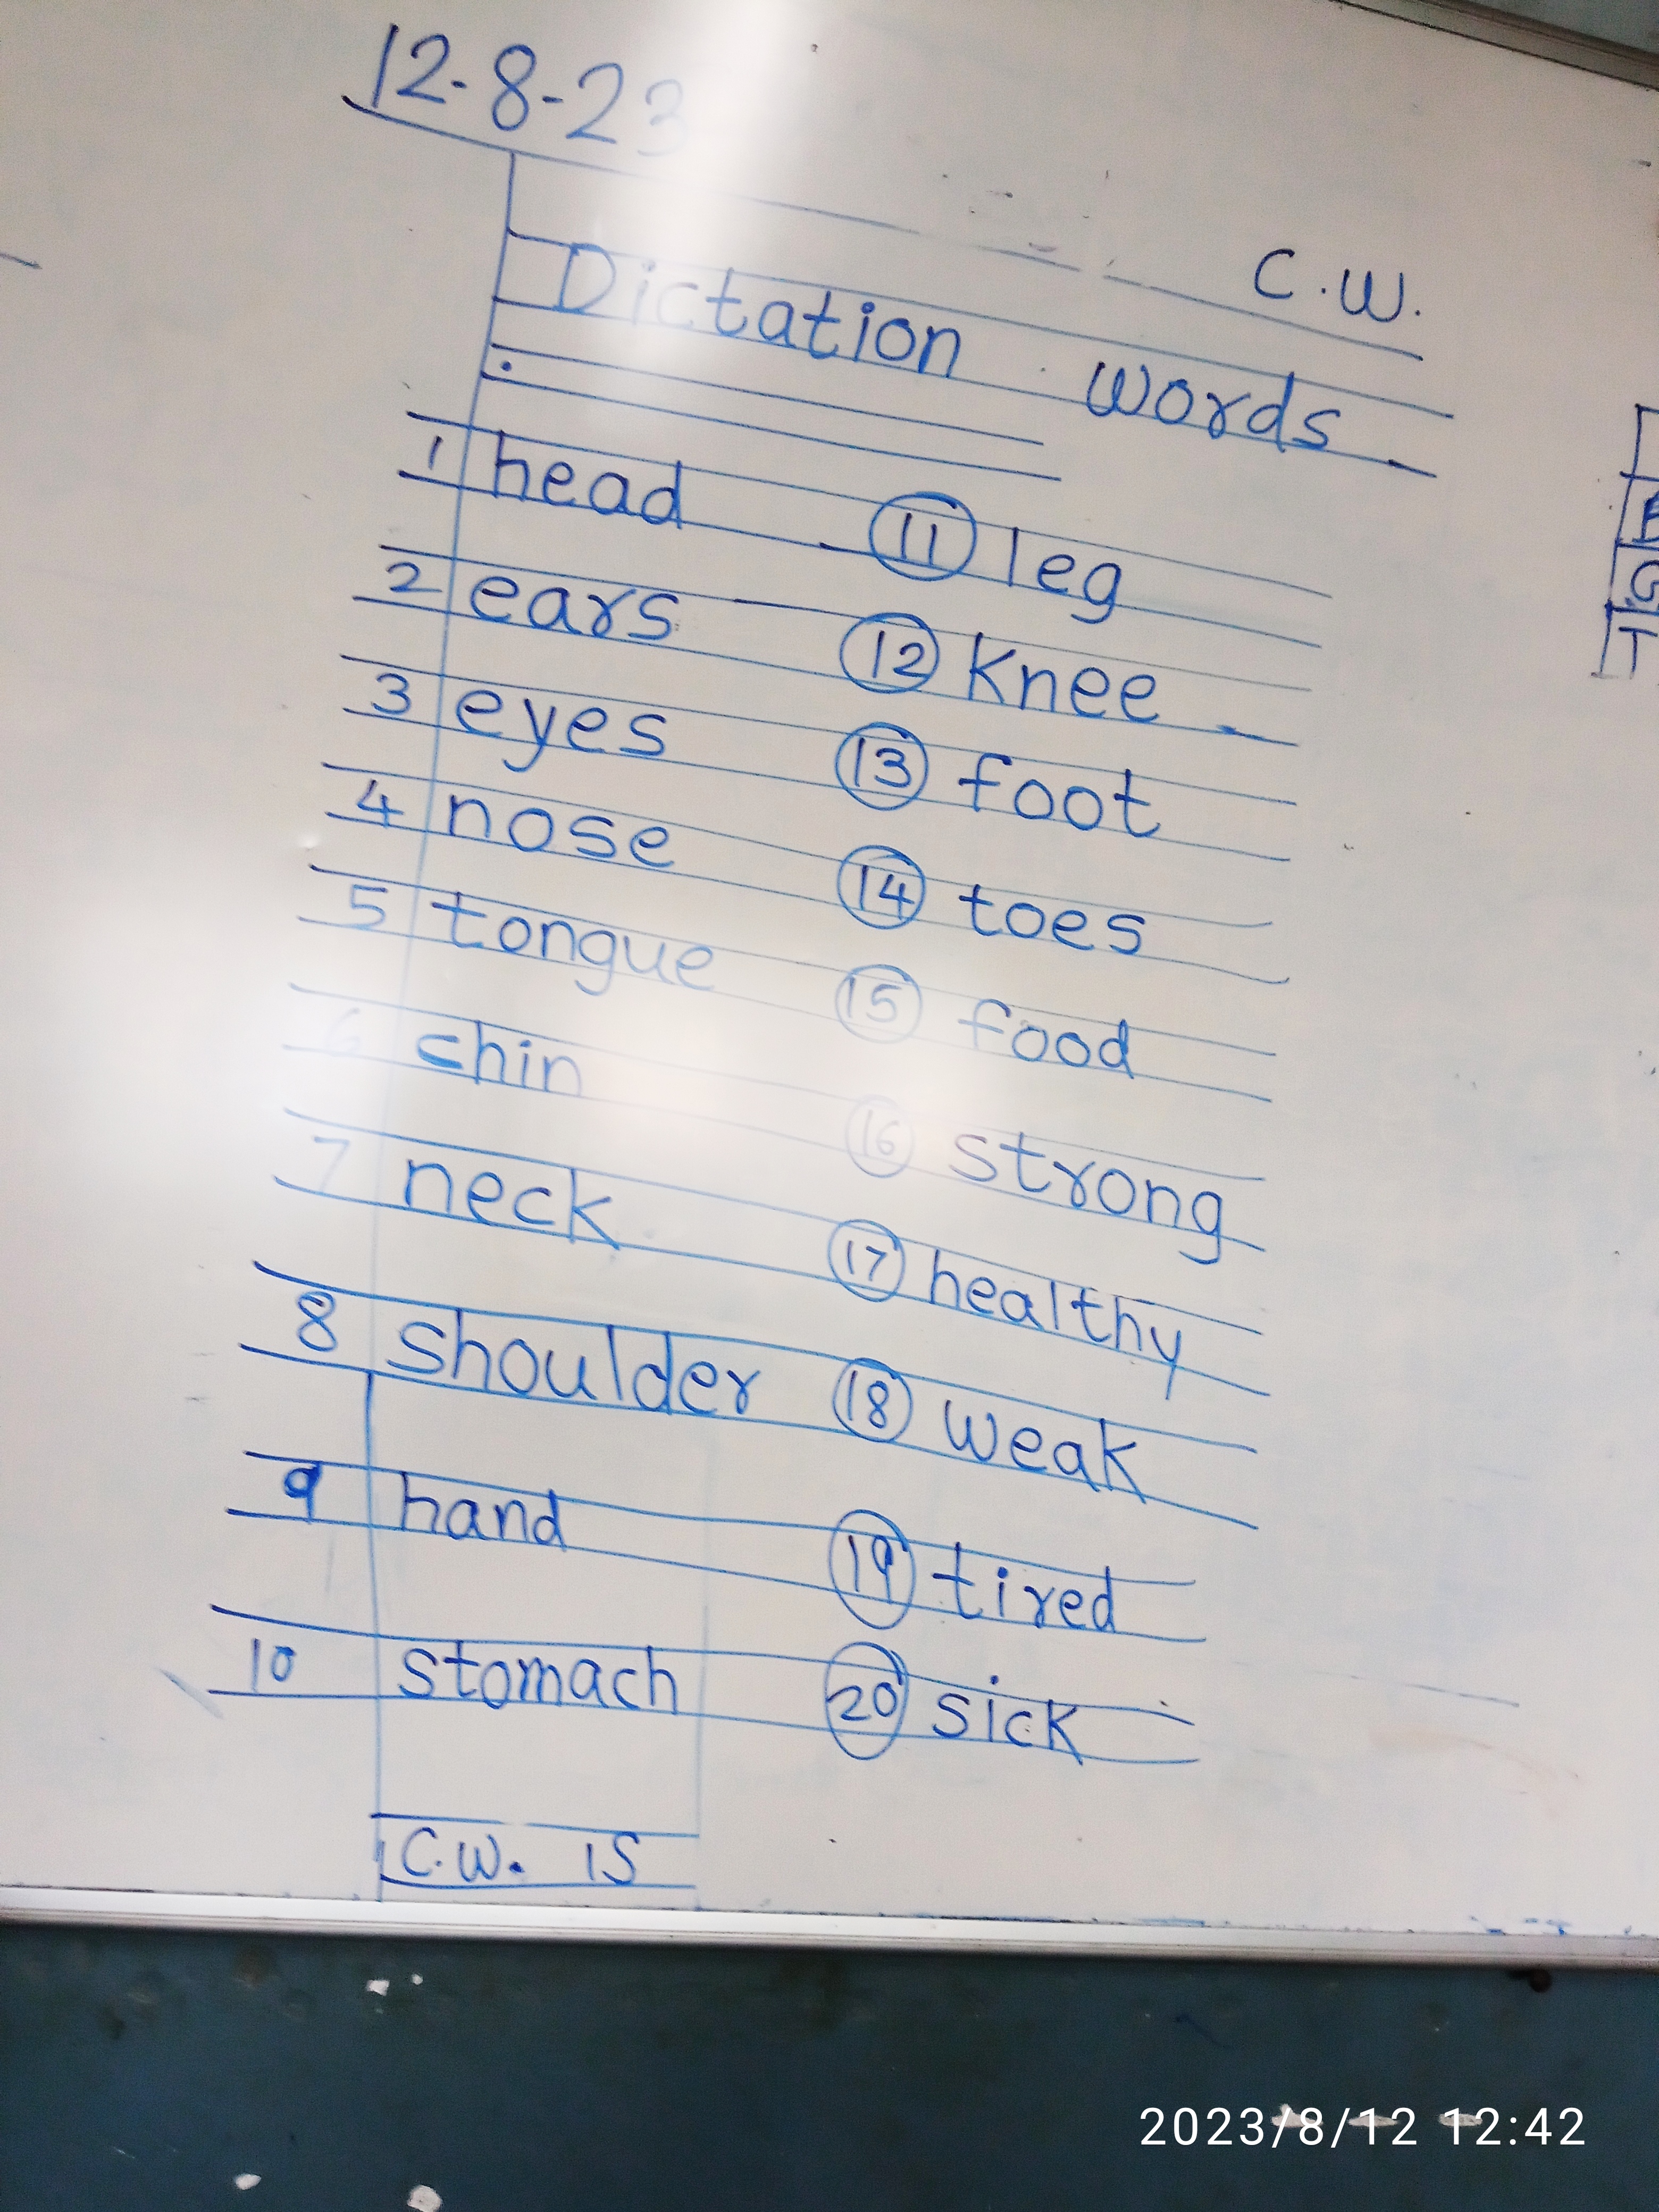 12-8-23
C.W.
Dictation words
1 head 11 leg
2 ears 12 knee
3 eyes 13 foot
4 nose 14 toes
5 tongue 15 food
6 chin 16 strong
7 neck 17 healthy
8 shoulder 18 weak
9 hand 19 tired
10 stomach 20 sick
C.W. 15
G
T
2023/8/12 12:42